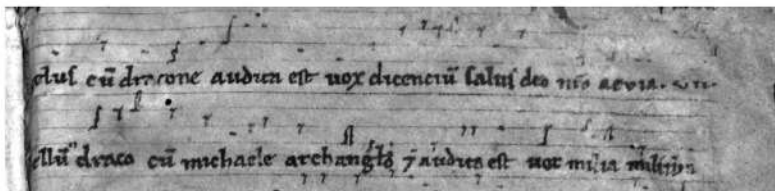 elus cū dracone audita est uox dicenciū salus deo nr̄o aeuia.
ellū draco cū michaele archanglo ⁊ audita est uox milia miliū